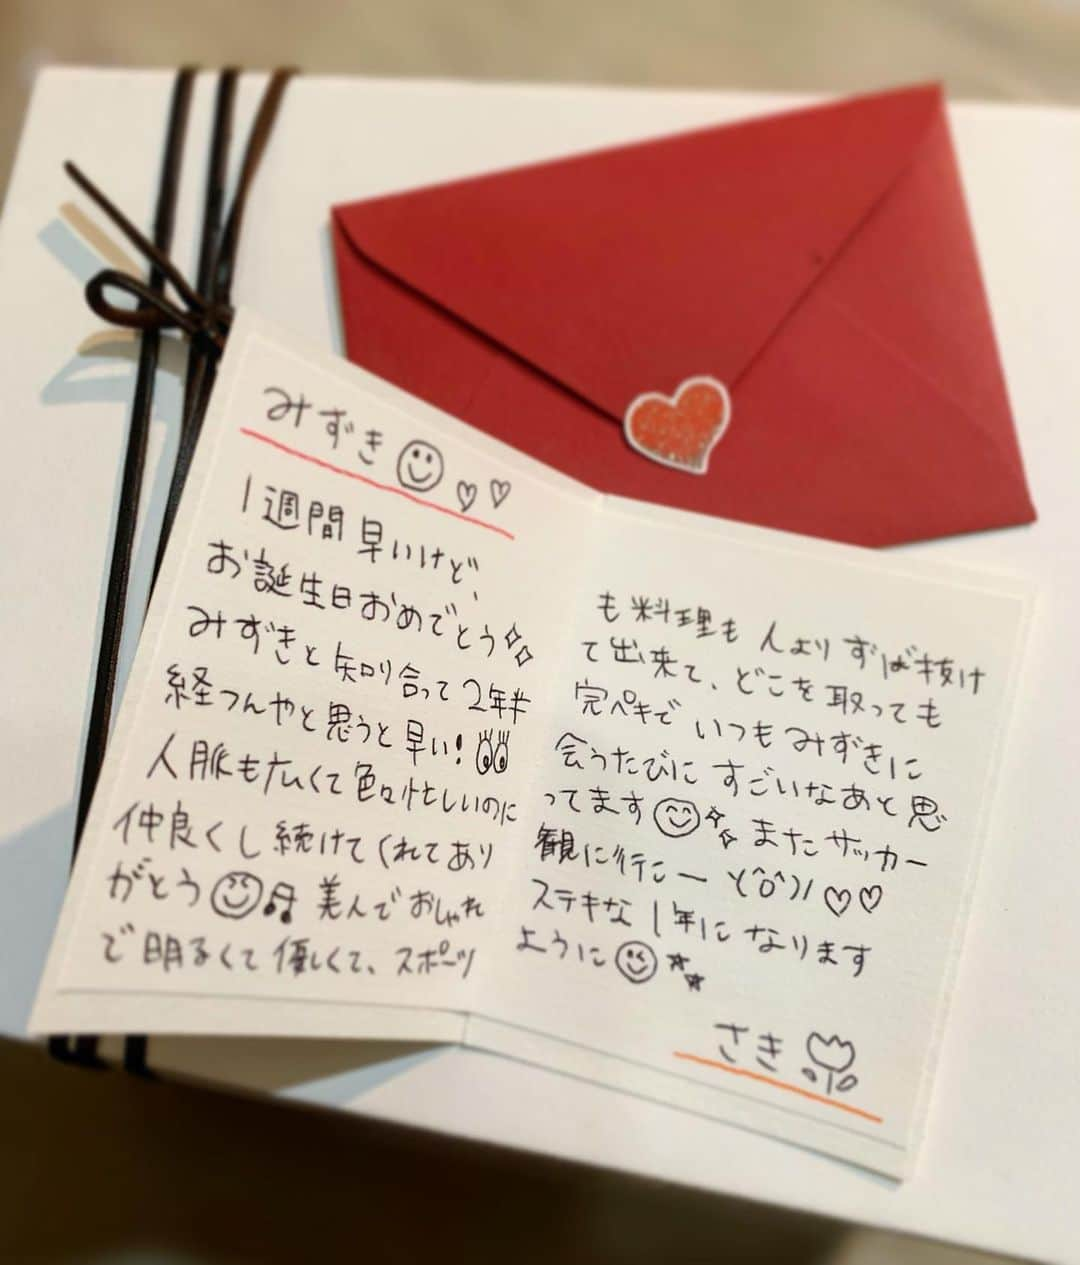 みずき
1週間早いけど、
お誕生日おめでとう
みずきと知り合って2年半
経つんやと思うと早い!
人脈も広くて色々忙しいのに
仲良くし続けてくれてあり
がとう 美人でおしゃれ
で明るくて優しくて、スポーツ
も料理も人よりずば抜け
て出来て、どこを取っても
完ペキでいつもみずきに
会うたびにすごいなあと思
ってます またサッカー
観に行こー ヽ(^o^)ノ
ステキな1年になります
ように
さき